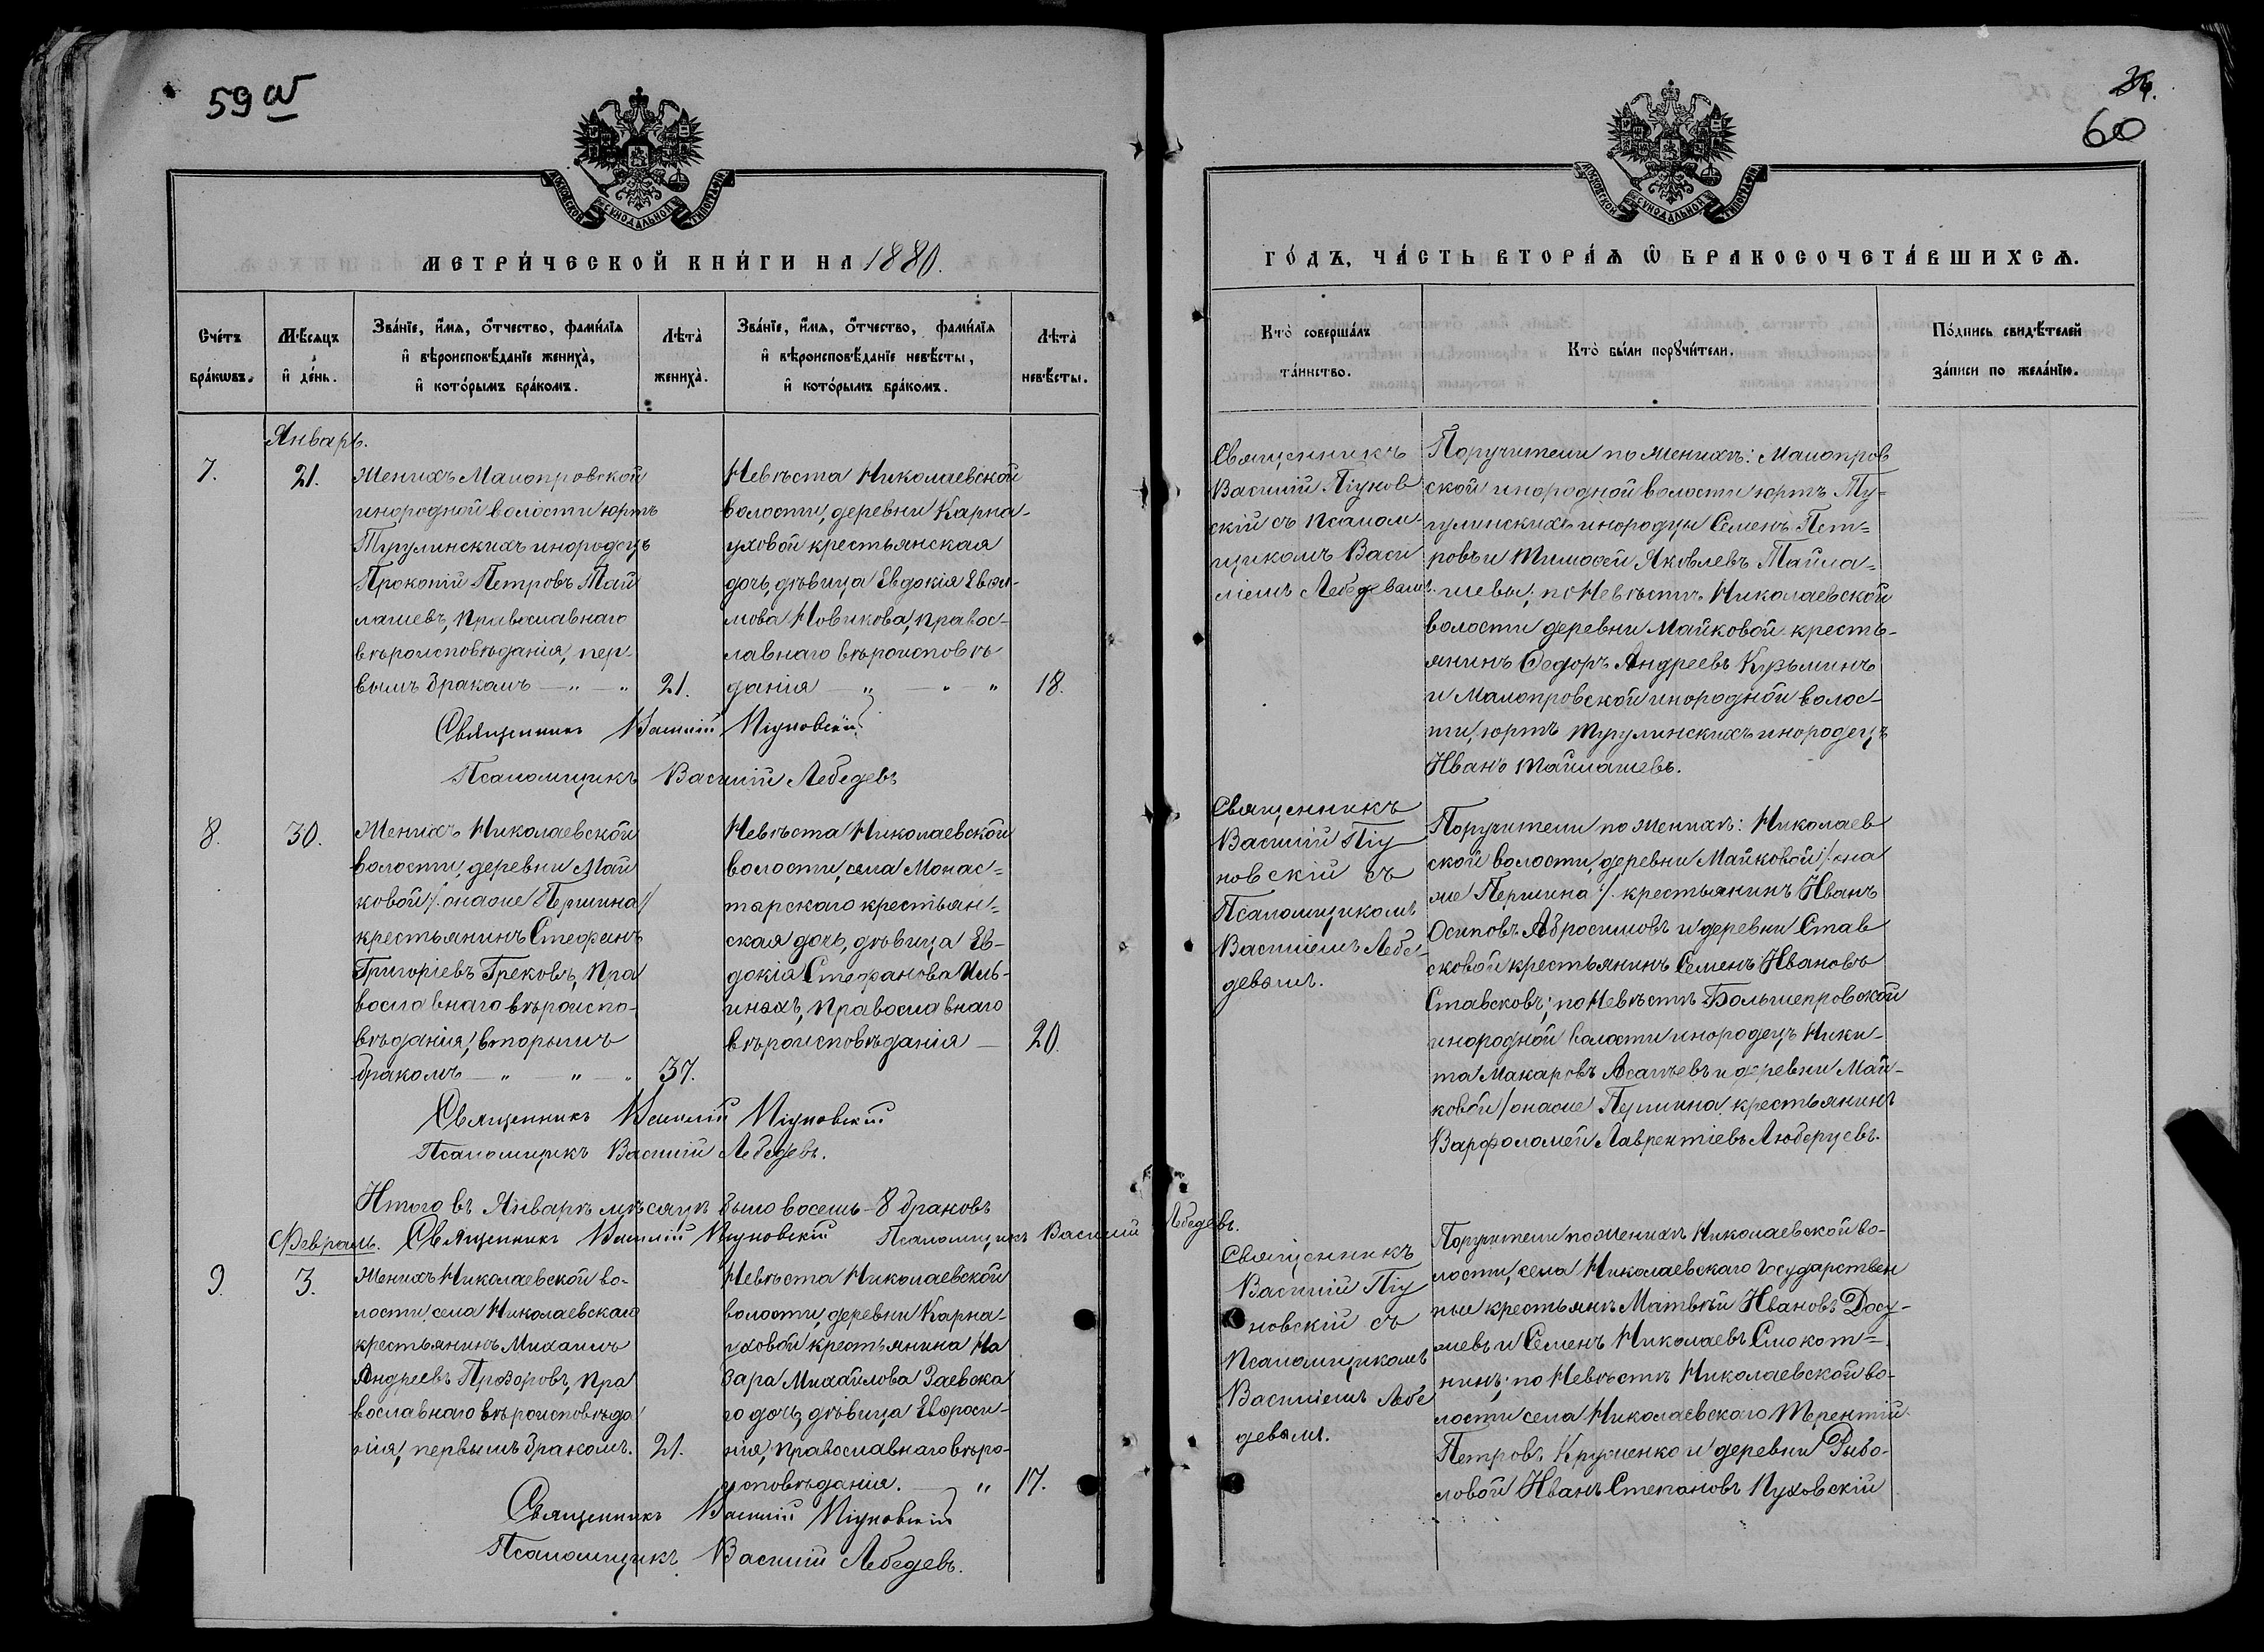 59 об
МОСКОВСКОЙ СѴНОДАЛЬНОЙ ТИПОГРАФІИ
МЕТРИ́ЧЕСКОЙ КНИ́ГИ НА 1880.
Сче́тъ бра́кѡвъ.
Мѣ́сяцъ и҆ де́нь.
Зва́нїе, и҆́мѧ, ѻ҆́тчество, фами́лїѧ
и҆ вѣроисповѣ́данїе жениха̀,
и҆ кото́рымъ бра́комъ.
Лѣта̀ жениха̀.
Зва́нїе, и҆́мѧ, ѻ҆́тчество, фами́лїѧ
и҆ вѣроисповѣ́данїе невѣ́сты,
и҆ кото́рымъ бра́комъ.
Лѣта̀ невѣ́сты.
Январь.
7.
21.
Женихъ Малопровской
инородной волости юртъ
Тугулинскихъ инородецъ
Прокопій Петровъ Тай
лашевъ, православнаго
вѣроисповѣданія, пер-
вымъ бракомъ — „ — „
21.
Невѣста Николаевской
волости, деревни Карна-
уховой крестьянская
дочь, дѣвица Евдокія Евѳи-
мова Новикова, правос-
лавнаго вѣроисповѣ
данія — „ — „ — „
18.
Священникъ Василій Піуновскій
Псаломщикъ Василій Лебедевъ
8.
30.
Женихъ Николаевской
волости, деревни Май
ковой /: онаже Першина /
крестьянинъ Стефанъ
Григоріевъ Грековъ, пра
вославнаго вѣроиспо-
вѣданія, вторымъ
бракомъ — „ — „ — „
37.
Невѣста Николаевской
волости, села Монас=
тырскаго крестьян=
ская дочь, дѣвица Ев-
докія Стефанова Иль-
иныхъ, православнаго
вѣроисповѣданія —
20.
Священникъ Василій Піуновскій
Псаломщикъ Василій Лебедевъ.
Итого въ Январѣ мѣсяцѣ было восемь – 8 браковъ
Священникъ Василій Піуновскій Псаломщикъ Василій Лебедевъ.
Февраль.
9.
3.
Женихъ Николаевской во-
лости, села Николаевскаго
крестьянинъ Михаилъ
Андреевъ Прозоровъ, пра
вославнаго вѣроисповѣда
нія, первымъ бракомъ.
21.
Невѣста Николаевской
волости, деревни Карна-
уховой крестьянина На
зара Михайлова Заевска
го дочь, дѣвица Евфроси-
нія, православнаго вѣро-
исповѣданія. — „
17.
Священникъ Василій Піуновскій
Псаломщикъ Василій Лебедевъ.
60
МОСКОВСКОЙ СѴНОДАЛЬНОЙ ТИПОГРАФІИ
ГО́ДЪ, ЧА́СТЬ ВТОРА́Ѧ Ѽ БРАКОСОЧЕТА́ВШИХСѦ.
Кто̀ соверша́лъ
та́инство.
Кто̀ бы́ли порꙋчи́тели.
По́дпись свидѣ́телей
за́писи по жела́нїю.
Священникъ
Василій Піунов
скій съ псалом-
щикомъ Васи
ліемъ Лебедевымъ.
Поручители по женихѣ: Малопров
ской инородной волости юртъ Ту-
гулинскихъ инородцы Семенъ Пет=
ровъ и Тимофей Яковлевъ Тайла-
шевы; по невѣстѣ Николаевской
волости деревни Майковой кресть-
янинъ Ѳедоръ Андреевъ Кузьминъ
и Малопровской инородной волос-
ти, юртъ Тугулинскихъ инородецъ
Иванъ Тайлашевъ.
Священникъ
Василій Піу
новскій съ
Псаломщикомъ
Василіемъ Лебе-
девымъ.
Поручители по женихѣ: Николаев
ской волости, деревни Майковой /: она
же Першина :/ крестьянинъ Иванъ
Осиповъ Абросимовъ и деревни Став
сковой крестьянинъ Семенъ Ивановъ
Ставсковъ; по невѣстѣ Большепровской
инородной волости инородецъ Ники-
та Макаровъ и деревни Май-
ковой / онаже Першина крестьянинъ
Варфоломей Лаврентіевъ
Священникъ
Василій Піу
новскій съ
Псаломщикомъ
Василіемъ Лебе
девымъ.
Поручители по женихѣ Николаевской во-
лости, села Николаевскаго государствен
ные крестьяне Матвѣй Ивановъ Досу-
жевъ и Семенъ Николаевъ Смокот=
нинъ; по невѣстѣ Николаевской во-
лости села Николаевскаго Терентій
Петровъ Крученко и деревни Рыбо-
ловой Иванъ Степановъ Пуховскій